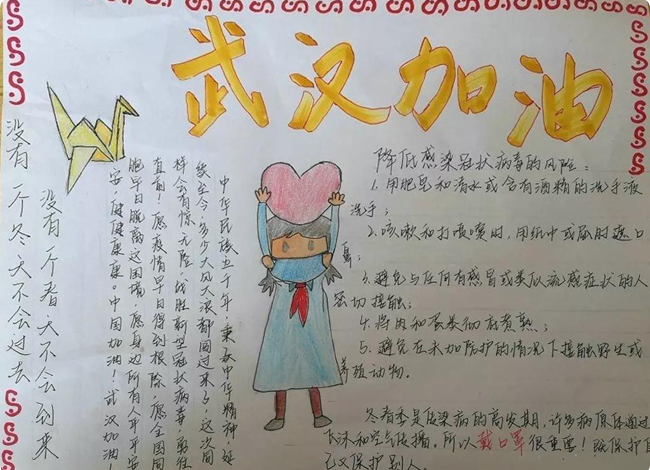 武汉加油
没有一个冬天不会过去
没有一个春天不会到来
中华民族五千年，秉承中华精神延
续至今，多少大风大浪都闯过来了，这次同
样会有惊无险，战胜新型冠状病毒，勇往
直前！愿疫情早日得到根除，愿全国同
胞早日脱离这困境，愿身边所有人平平安
安，健健康康。中国加油！武汉加油！
降低感染冠状病毒的风险：
1.用肥皂和清水或含有酒精的洗手液
洗手；
2.咳嗽和打喷嚏时，用纸巾或屈肘遮口
鼻；
3.避免与任何有感冒或类似流感症状的人
密切接触；
4.将肉和蛋类彻底煮熟；
5.避免在未加防护的情况下接触野生或
养殖动物。
冬春季是传染病的高发期，许多病原体通过
飞沫和空气传播。所以戴口罩很重要！既保护自
己又保护别人。